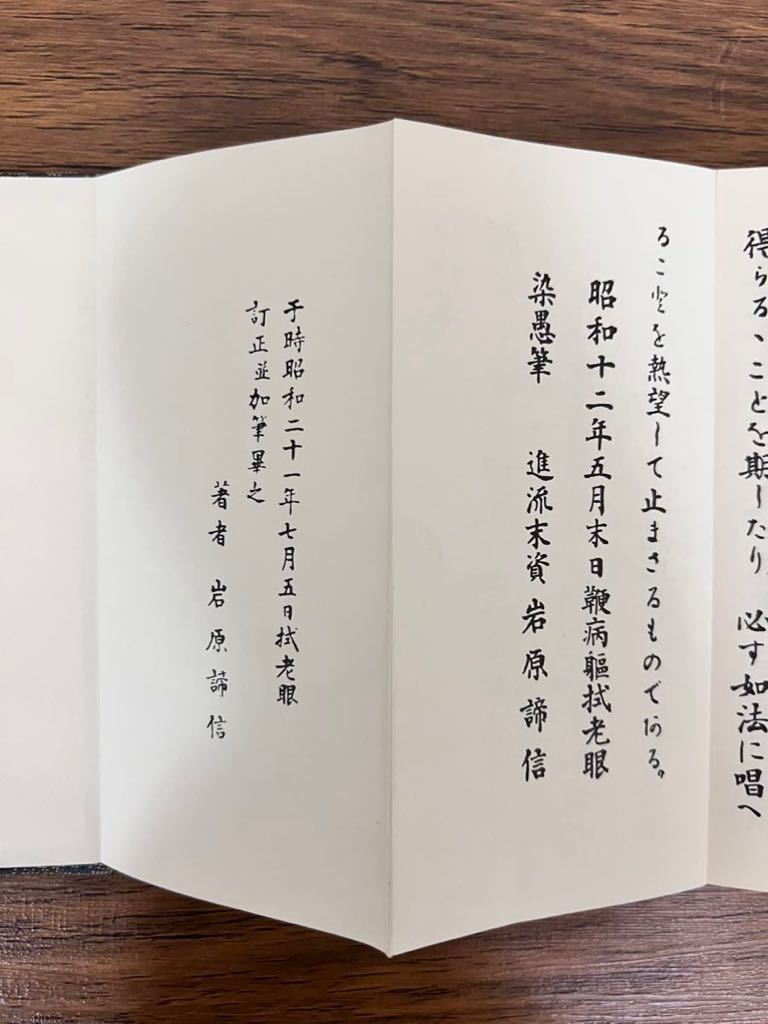 得らるゝことを期したり。必す如法に唱へ
ることを熱望して止まさるものである。
昭和十二年五月末日鞭病軀拭老眼
染愚筆　進流末資岩原諦信
于時昭和二十一年七月五日拭老眼
訂正並加筆畢之
著者　岩原諦信